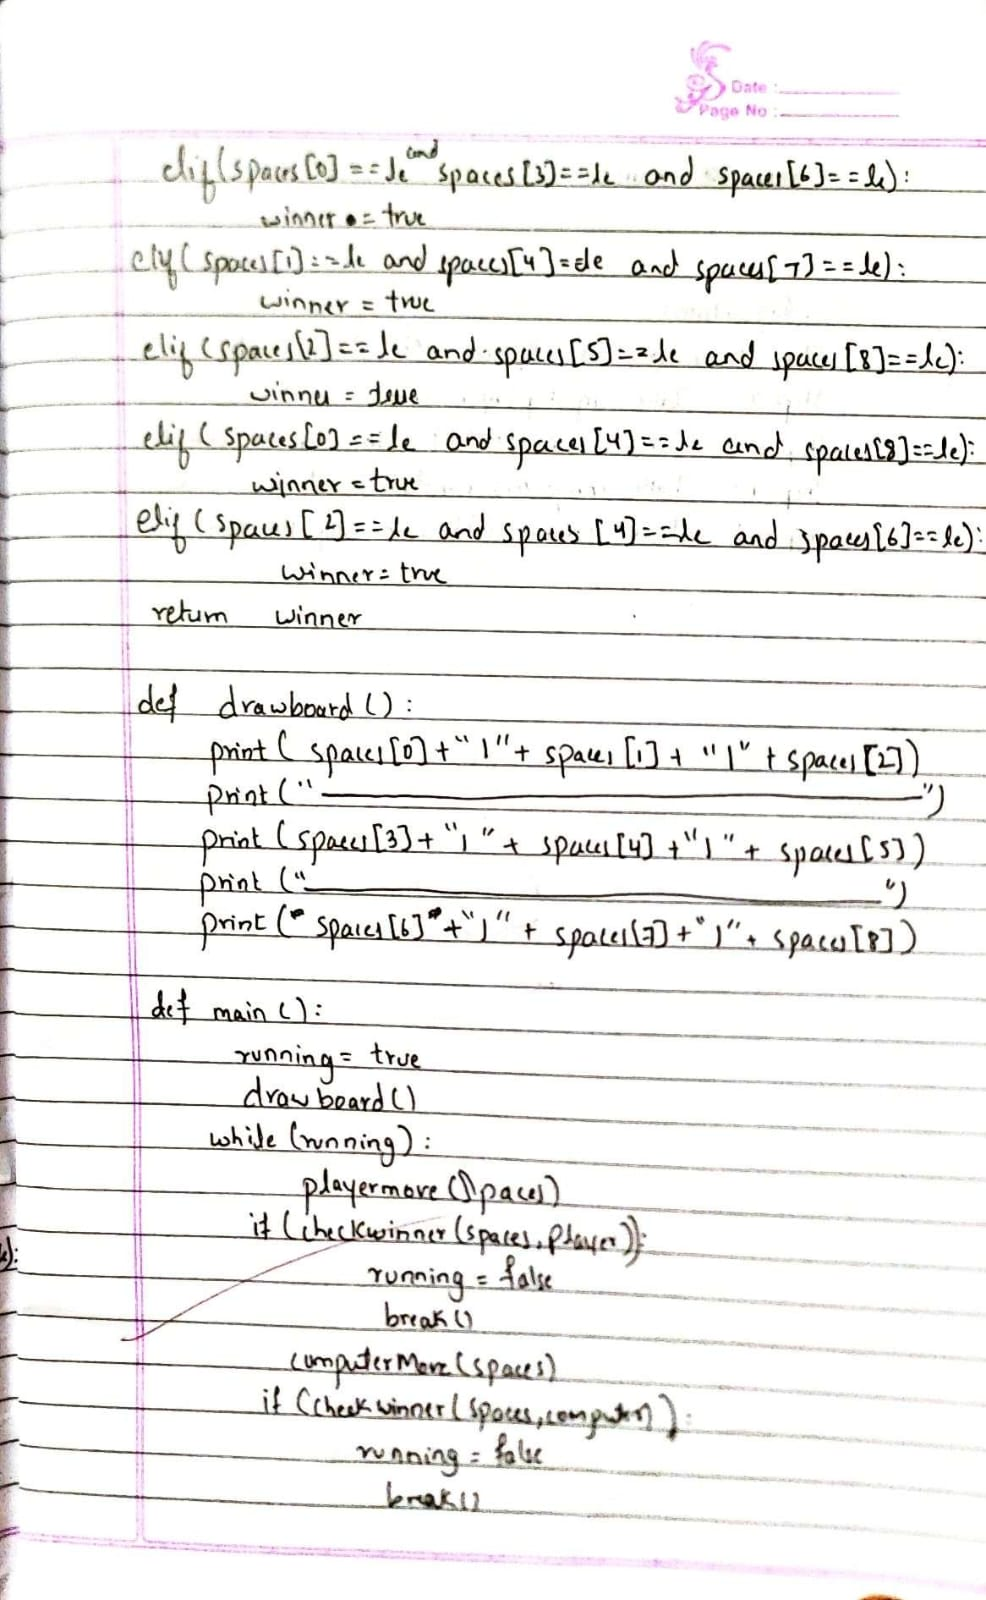 Date :
Page No :
elif(spaces[0]==le and spaces[3]==le and spaces[6]==le):
winner = true
elif(spaces[1]==le and spaces[4]==le and spaces[7]==le):
winner = true
elif(spaces[2]==le and spaces[5]==le and spaces[8]==le):
winner = true
elif(spaces[0]==le and spaces[4]==le and spaces[8]==le):
winner = true
elif(spaces[2]==le and spaces[4]==le and spaces[6]==le):
winner = true
return winner
def drawboard():
print(spaces[0]+"|"+ spaces[1] + "|" + spaces[2])
print("__________________")
print(spaces[3]+"|"+ spaces[4]+"|"+ spaces[5])
print("__________________")
print("spaces[6]"+"|"+ spaces[7]+"|"+ spaces[8])
def main():
running = true
drawboard()
while(running):
playermove(spaces)
if(checkwinner(spaces,player)):
running = false
break()
computerMove(spaces)
if(checkwinner(spaces,computer)):
running = false
break()
):